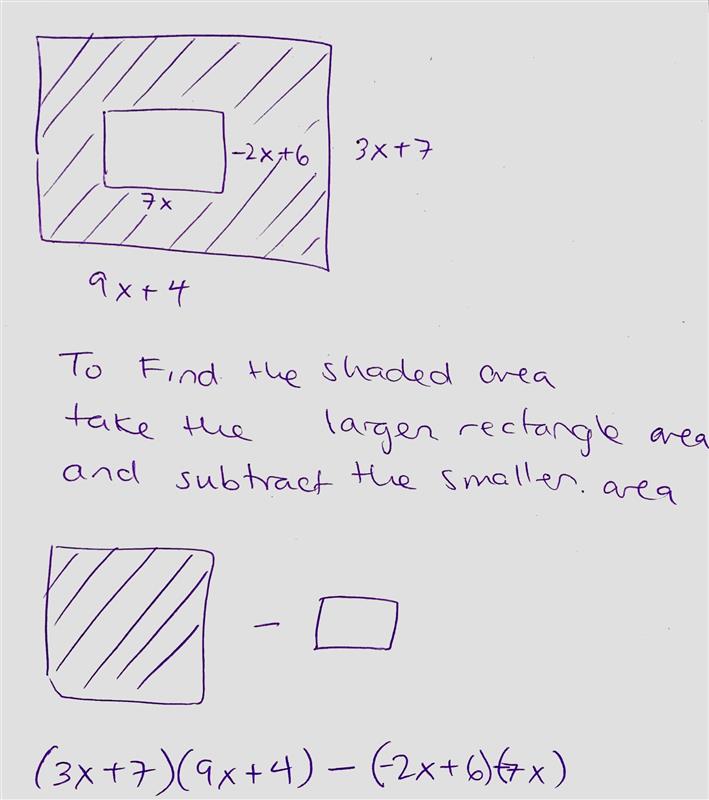 -2x+6
3x+7
7x
9x+4
To Find the shaded area
take the larger rectangle area
and subtract the smaller. area
-
(3x+7)(9x+4) - (-2x+6)(7x)